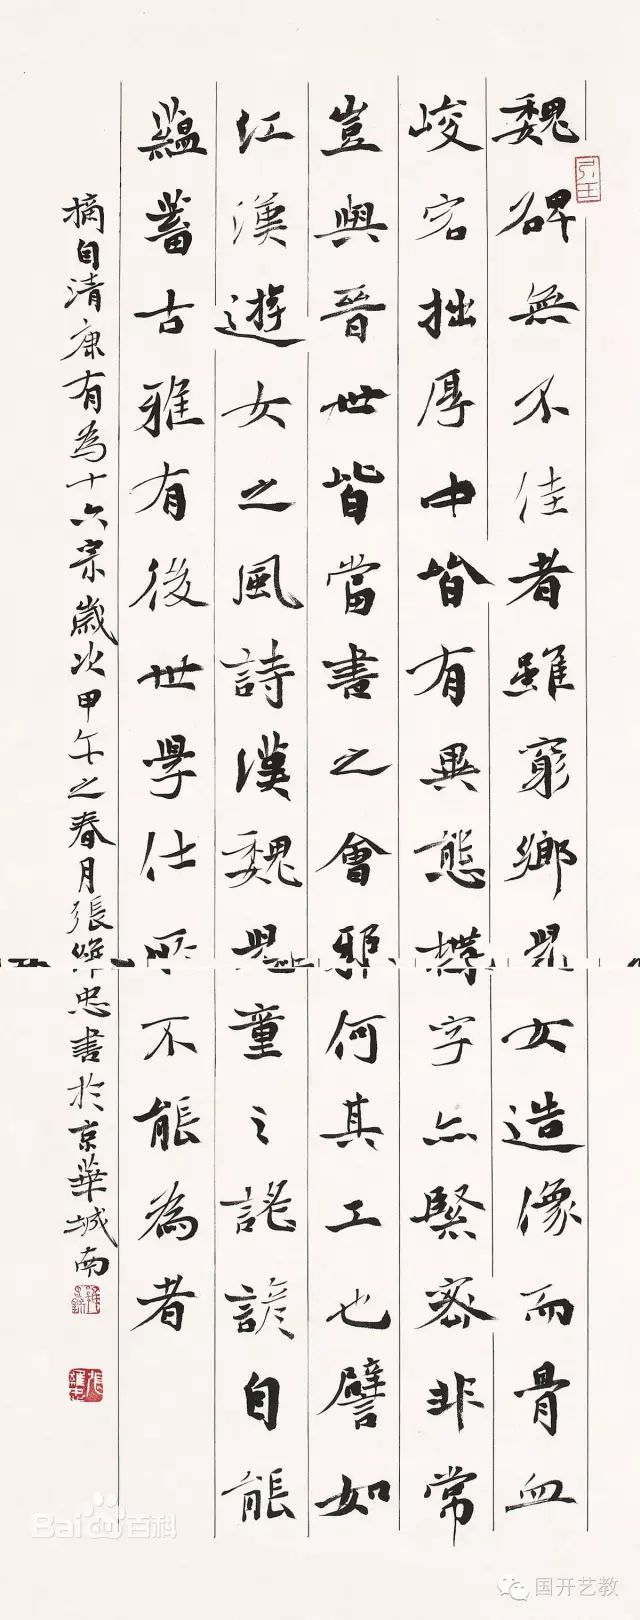 魏碑無不佳者雖窮鄉兒女造像而骨血
峻宕拙厚中皆有異態構字亦緊密非常
豈與晉世皆當書之會邪何其工也譬如
江漢遊女之風詩漢魏兒童之謠諺自能
蘊蓄古雅有後世學仕所不能為者
摘自清康有為十六宗歲次甲午之春月張維忠書於京華城南
Bai百科
国开艺教